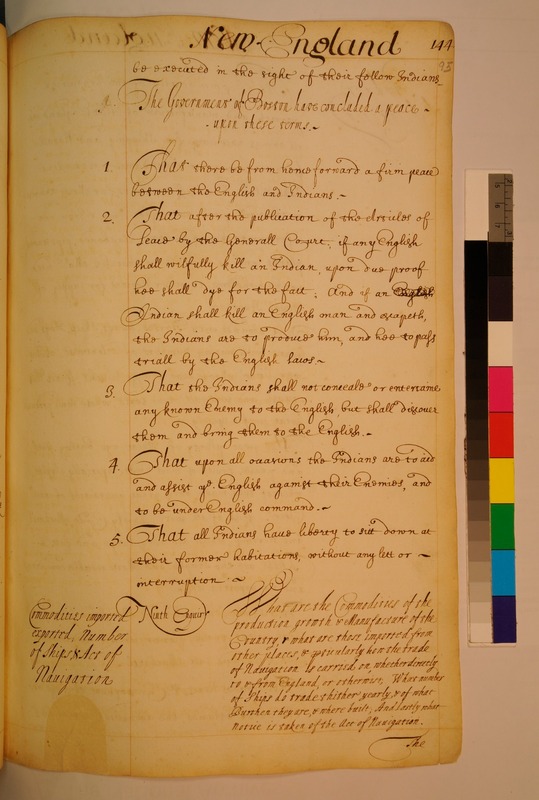 New England
144
93
be executed in the sight of their fellow Indians.
The Government of Boston have concluded a peace
upon these terms.
1. That there be from henceforward a firm peace
between the English and Indians.
2. That after the publication of the Articles of
Peace by the Generall Court, if any English
shall wilfully kill an Indian, upon due proof
hee shall dye for the fact. And if an English
Indian shall kill an English man and escapeth,
the Indians are to produce him, and hee to pass
triall by the English laws.
3. That the Indians shall not conceale or entertaine
any known Enemy to the English, but shall discover
them and bring them to the English.
4. That upon all occasions the Indians are to aid
and assist ye English against their Enemies, and
to be under English command.
5. That all Indians have liberty to sitt down at
their former habitations, without any lett or
interruption
Commodities imported
exported, Number
of Ships & Act of
Navigation
Ninth
What are the Commodities of the
production growth & Manufacture of the
Country, & what are those imported from
other places, & pticularly how the trade
of Navigation is carried on, whether directly
to & from England, or otherwise, What number
of Ships do trade thither yearly, & of what
Burthen they are, & where built, And lastly what
notice is taken of the Act of Navigation.
The